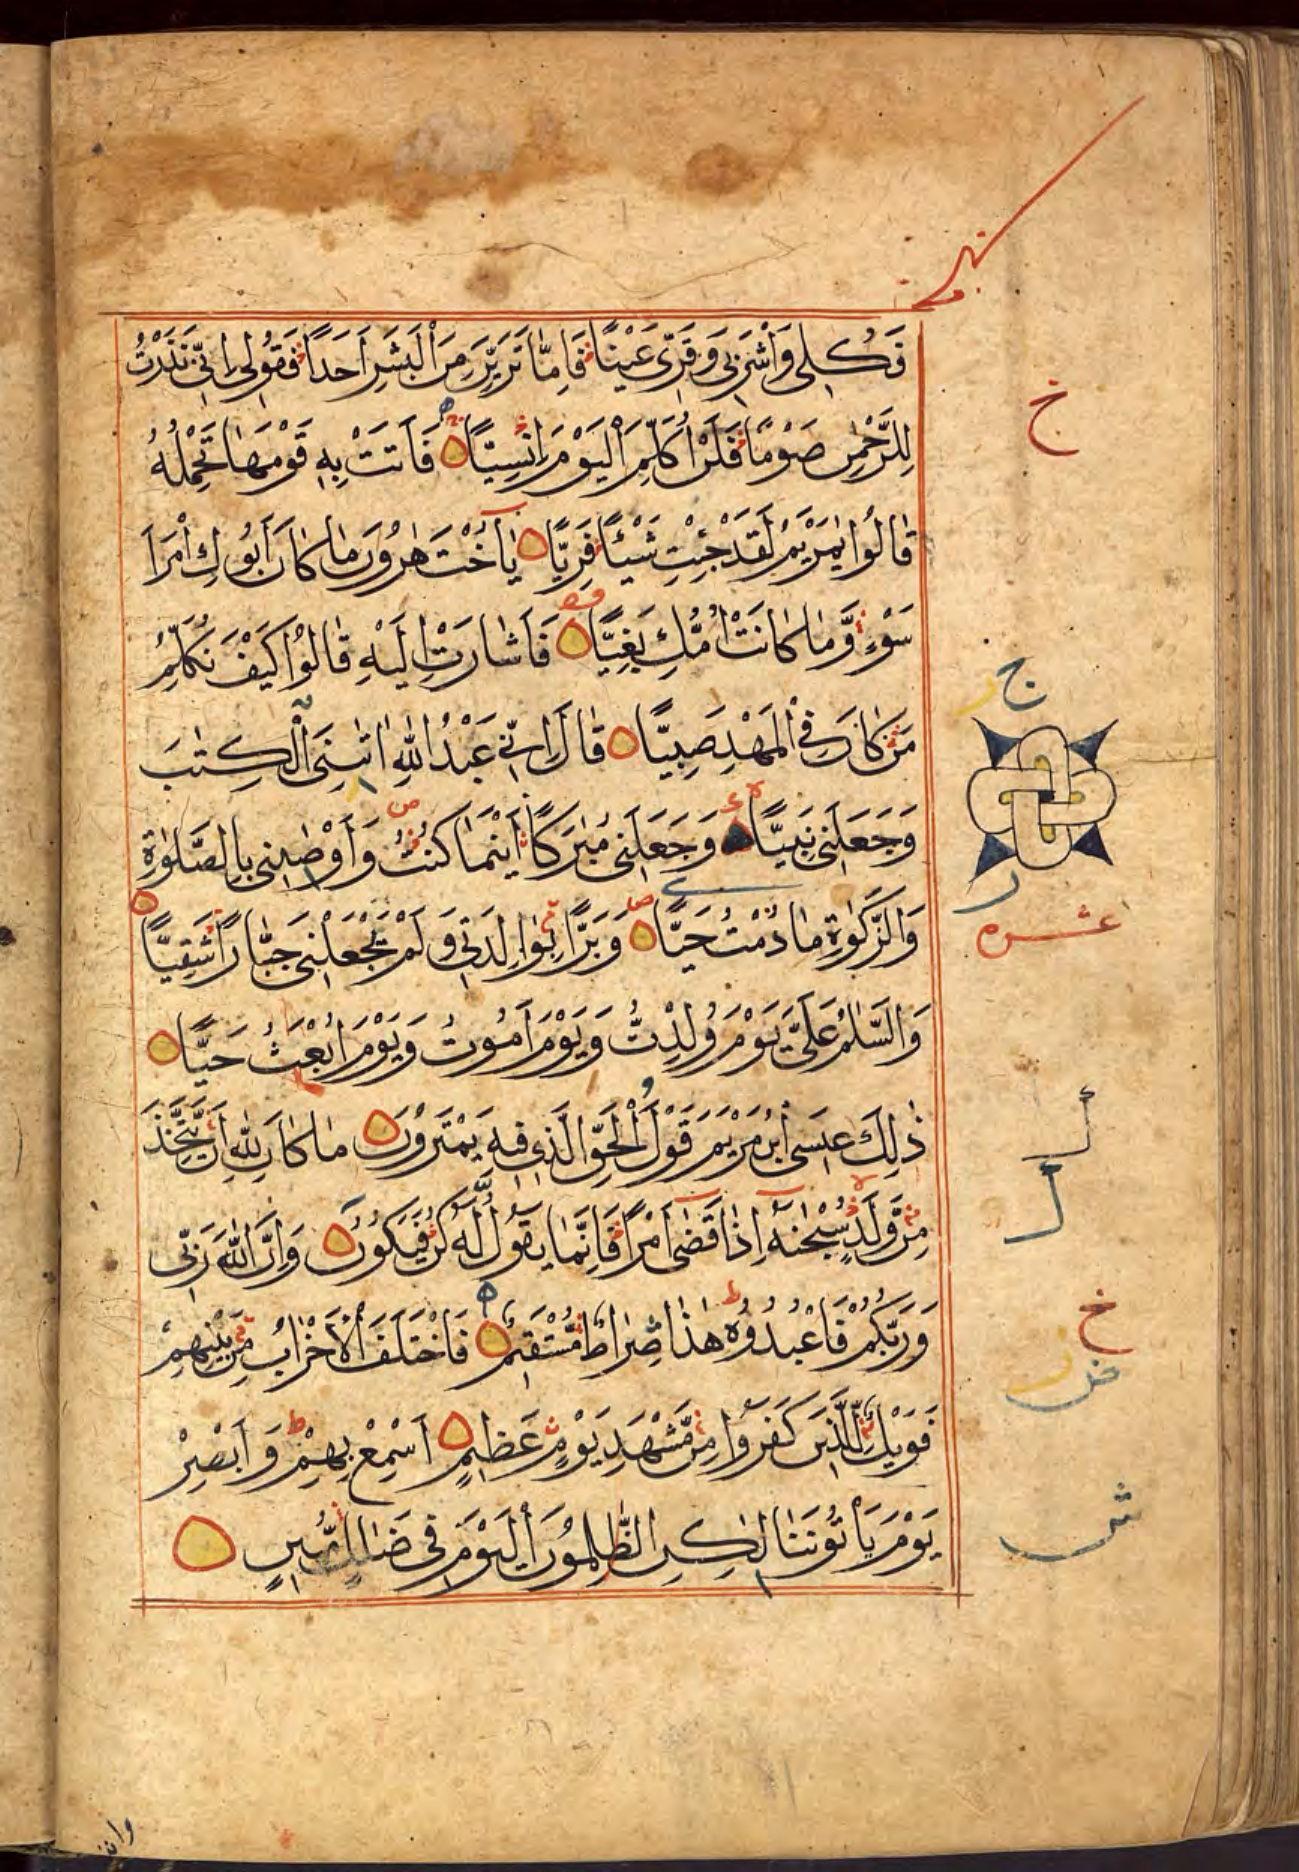 فَكُلِى وَاشْرَبِى وَقَرِّى عَيْنًا فَاِمَّا تَرَيِنَّ مِنَ الْبَشَرِ اَحَدًا فَقُولِى اِنِّى نَذَرْتُ
لِلرَّحْمٰنِ صَوْمًا فَلَنْ اُكَلِّمَ الْيَوْمَ اِنْسِيًّا فَاَتَتْ بِهٖ قَوْمَهَا تَحْمِلُهُ
قَالُوا يٰمَرْيَمُ لَقَدْ جِئْتِ شَيْئًا فَرِيًّا يَا اُخْتَ هٰرُونَ مَا كَانَ اَبُوكِ امْرَاَ
سَوْءٍ وَّمَا كَانَتْ اُمُّكِ بَغِيًّا فَاَشَارَتْ اِلَيْهِ قَالُوا كَيْفَ نُكَلِّمُ
مَنْ كَانَ فِى الْمَهْدِ صَبِيًّا قَالَ اِنِّى عَبْدُ اللّٰهِ اٰتٰىنِىَ الْكِتٰبَ
وَجَعَلَنِى نَبِيًّا وَجَعَلَنِى مُبٰرَكًا اَيْنَمَا كُنْتُ وَاَوْصٰىنِى بِالصَّلٰوةِ
وَالزَّكٰوةِ مَا دُمْتُ حَيًّا وَبَرًّا بِوَالِدَتِى وَلَمْ يَجْعَلْنِى جَبَّارًا شَقِيًّا
وَالسَّلٰمُ عَلَىَّ يَوْمَ وُلِدْتُّ وَيَوْمَ اَمُوتُ وَيَوْمَ اُبْعَثُ حَيًّا
ذٰلِكَ عِيسَى ابْنُ مَرْيَمَ قَوْلَ الْحَقِّ الَّذِى فِيهِ يَمْتَرُونَ مَا كَانَ لِلّٰهِ اَنْ يَتَّخِذَ
مِنْ وَّلَدٍ سُبْحٰنَهٗ اِذَا قَضٰى اَمْرًا فَاِنَّمَا يَقُولُ لَهٗ كُنْ فَيَكُونُ وَاِنَّ اللّٰهَ رَبِّى
وَرَبُّكُمْ فَاعْبُدُوهُ هٰذَا صِرَاطٌ مُّسْتَقِيمٌ فَاخْتَلَفَ الْاَحْزَابُ مِنْ بَيْنِهِمْ
فَوَيْلٌ لِّلَّذِينَ كَفَرُوا مِنْ مَّشْهَدِ يَوْمٍ عَظِيمٍ اَسْمِعْ بِهِمْ وَاَبْصِرْ
يَوْمَ يَاْتُونَنَا لٰكِنِ الظّٰلِمُونَ الْيَوْمَ فِى ضَلَالٍ مُّبِينٍ
خ
ج
ر
عشره
خ